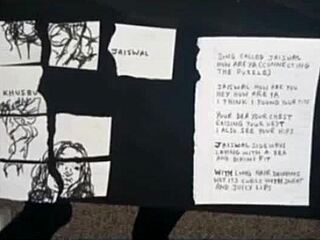 JAISWAL
KHUSBU
SONG CALLED JAISWAL
HOW ARE YA (CONNECTING
THE PUZZLE)
JAISWAL HOW ARE YOU
HEY HOW ARE YA
I THINK I FOUND YOUR
POUR
YOUR CHEST
RAISING YOUR
I ALSO SEE YOUR HIPS
JAISWAL SIDEWAYS
LAYING WITH A BRA
AND BIKINI FIT
WITH LONG HAIR
WET ITS CURLS WITH SWEAT
AND JUICY LIPS